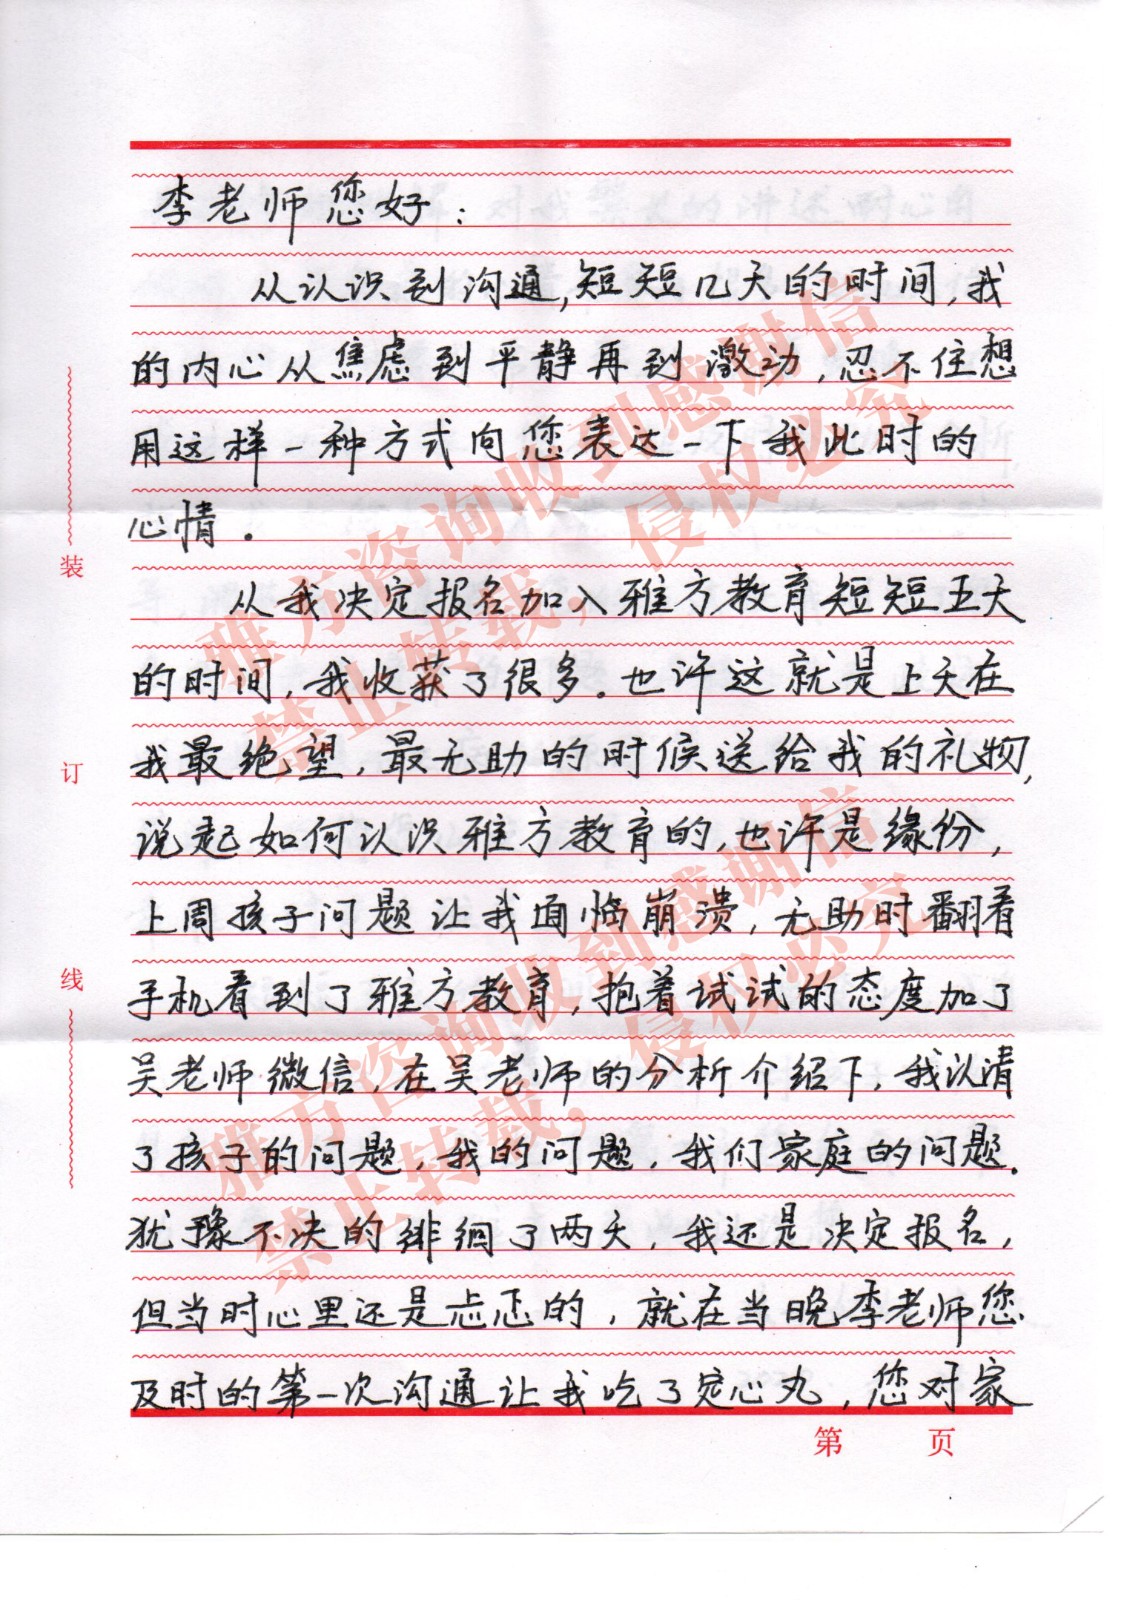 李老师您好:
从认识到沟通,短短几天的时间,我
的内心从焦虑到平静再到激动,忍不住想
用这样一种方式向您表达一下我此时的
心情。
从我决定报名加入雅方教育短短五天
的时间,我收获了很多。也许这就是上天在
我最绝望,最无助的时候送给我的礼物,
说起如何认识雅方教育的,也许是缘份,
上周孩子问题让我面临崩溃,无助时翻看
手机看到了雅方教育,抱着试试的态度加了
吴老师微信,在吴老师的分析介绍下,我认清
了孩子的问题,我的问题,我们家庭的问题。
犹豫不决的徘徊了两天,我还是决定报名,
但当时心里还是忐忑的,就在当晚李老师您
及时的第一次沟通让我吃了定心丸,您对家
装
订
线
第 页
雅方咨询收到感谢信
禁止转载,侵权必究
雅方咨询收到感谢信
禁止转载,侵权必究